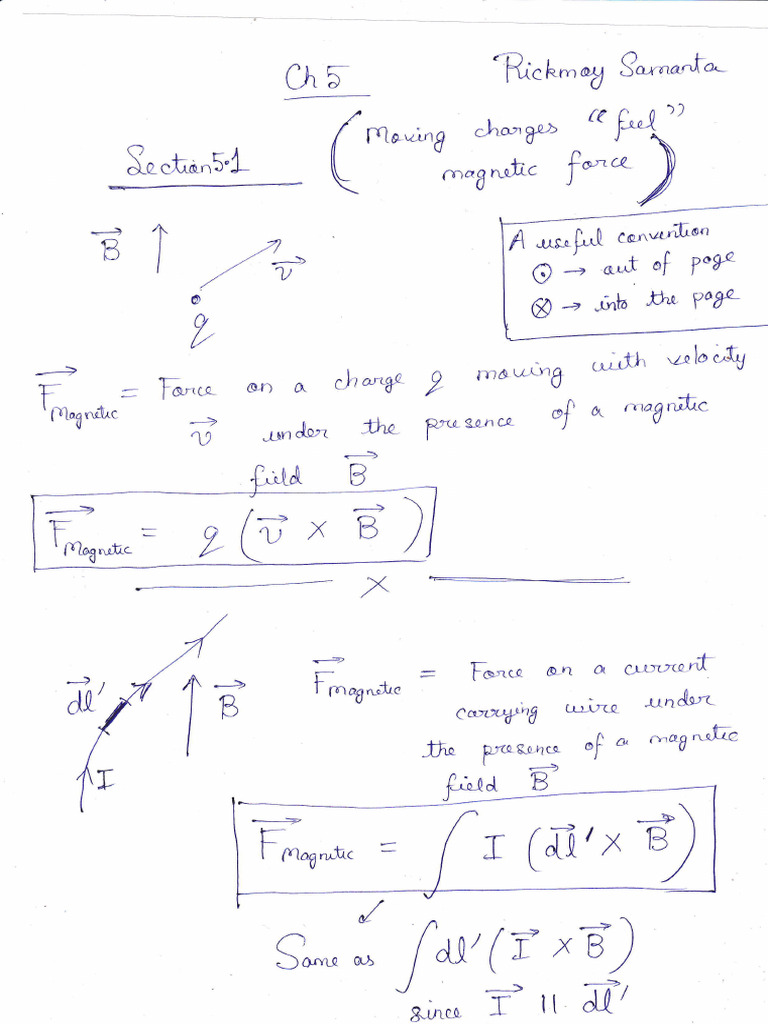 Ch 5
Rickmoy Samanta
Section 5.1
(Moving charges "feel"
magnetic force)
B⃗
v⃗
q
A useful convention
⊙ → out of page
⊗ → into the page
F⃗_Magnetic = Force on a charge q moving with velocity
v⃗ under the presence of a magnetic
field B⃗
F⃗_Magnetic = q (v⃗ × B⃗)
×
dl⃗′
B⃗
I
F⃗_Magnetic = Force on a current
carrying wire under
the presence of a magnetic
field B⃗
F⃗_Magnetic = ∫ I (dl⃗′ × B⃗)
Same as ∫ dl′ (I⃗ × B⃗)
since I⃗ || dl⃗′